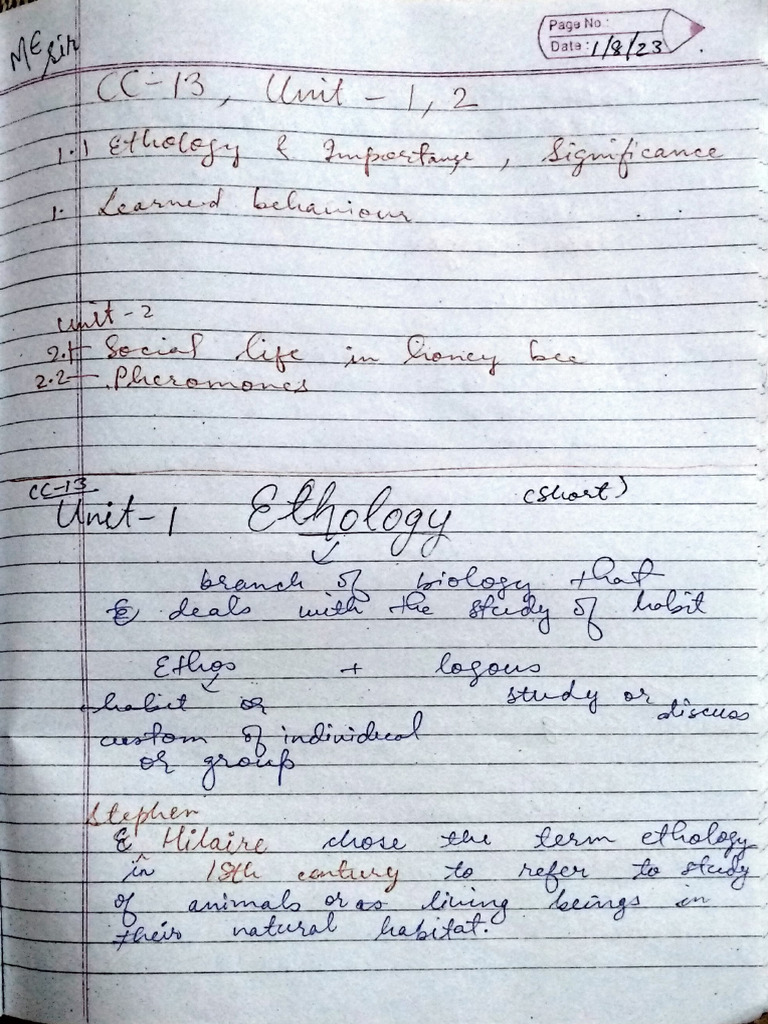 ME sir
Page No :
Date : 1/8/23
CC-13, Unit - 1, 2
1.1 Ethology & Importance, Significance
1. Learned behaviour
Unit-2
2.1- Social life in honey bee
2.2- Pheromones
CC-13
Unit-1 Ethology (Short)
branch of biology that
deals with the study of habit
Ethos + logous
habit or study or discuss
custom of individual
or group
Stephen
& Hilaire chose the term ethology
in 18th century to refer to study
of animals or as living beings in
their natural habitat.